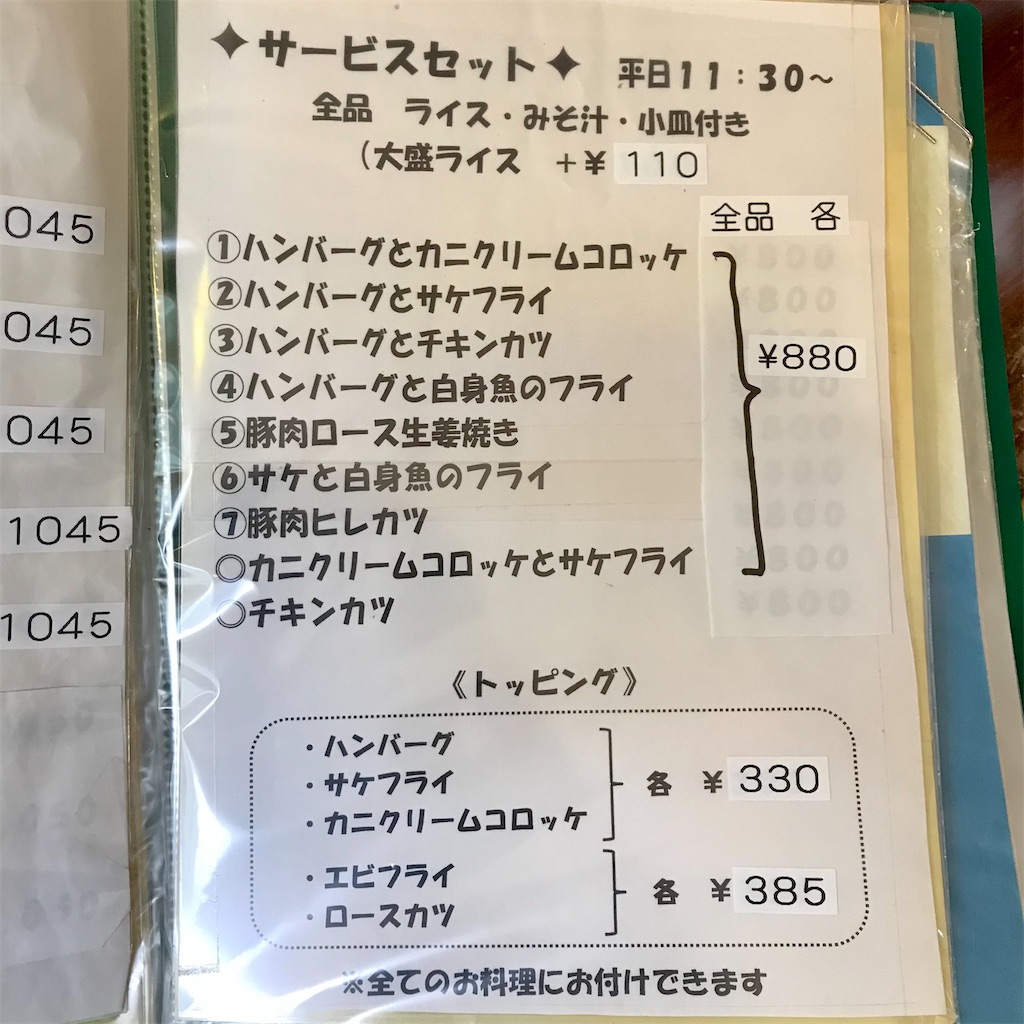 ✦サービスセット✦ 平日11:30～
全品 ライス・みそ汁・小皿付き
(大盛ライス +¥ 110
全品 各
①ハンバーグとカニクリームコロッケ
②ハンバーグとサケフライ
③ハンバーグとチキンカツ
¥880
④ハンバーグと白身魚のフライ
⑤豚肉ロース生姜焼き
⑥サケと白身魚のフライ
⑦豚肉ヒレカツ
○カニクリームコロッケとサケフライ
○チキンカツ
《トッピング》
・ハンバーグ
・サケフライ 各 ¥ 330
・カニクリームコロッケ
・エビフライ
各 ¥ 385
・ロースカツ
※全てのお料理にお付けできます
1045
045
045
1045
1045